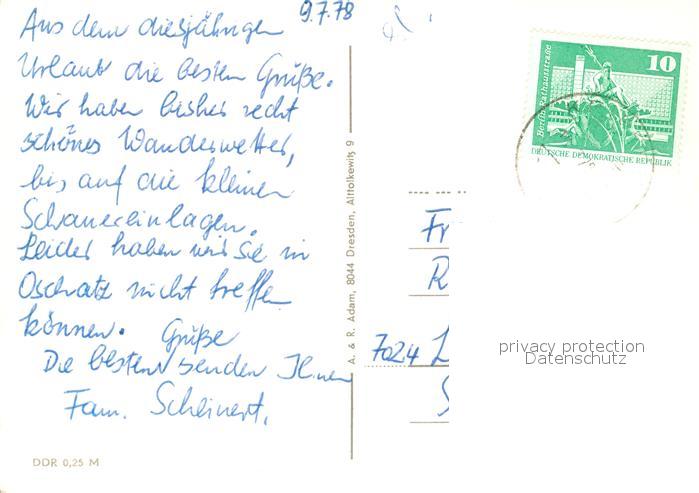 9.7.78
Aus dem diesjährigen
Urlaub die besten Grüße.
Wir haben bisher recht
schönes Wanderwetter,
bis auf die kleinen
Schauereinlagen.
Leider haben wir Sie in
Oschatz nicht treffen
können. Grüße
Die besten senden Ihnen
Fam. Scheinert.
DDR 0,25 M
A. & R. Adam, 8044 Dresden, Alttolkewitz 9
10
Berlin, Rathausstraße
DEUTSCHE DEMOKRATISCHE REPUBLIK
Fr
R
7024 L
S
privacy protection
Datenschutz